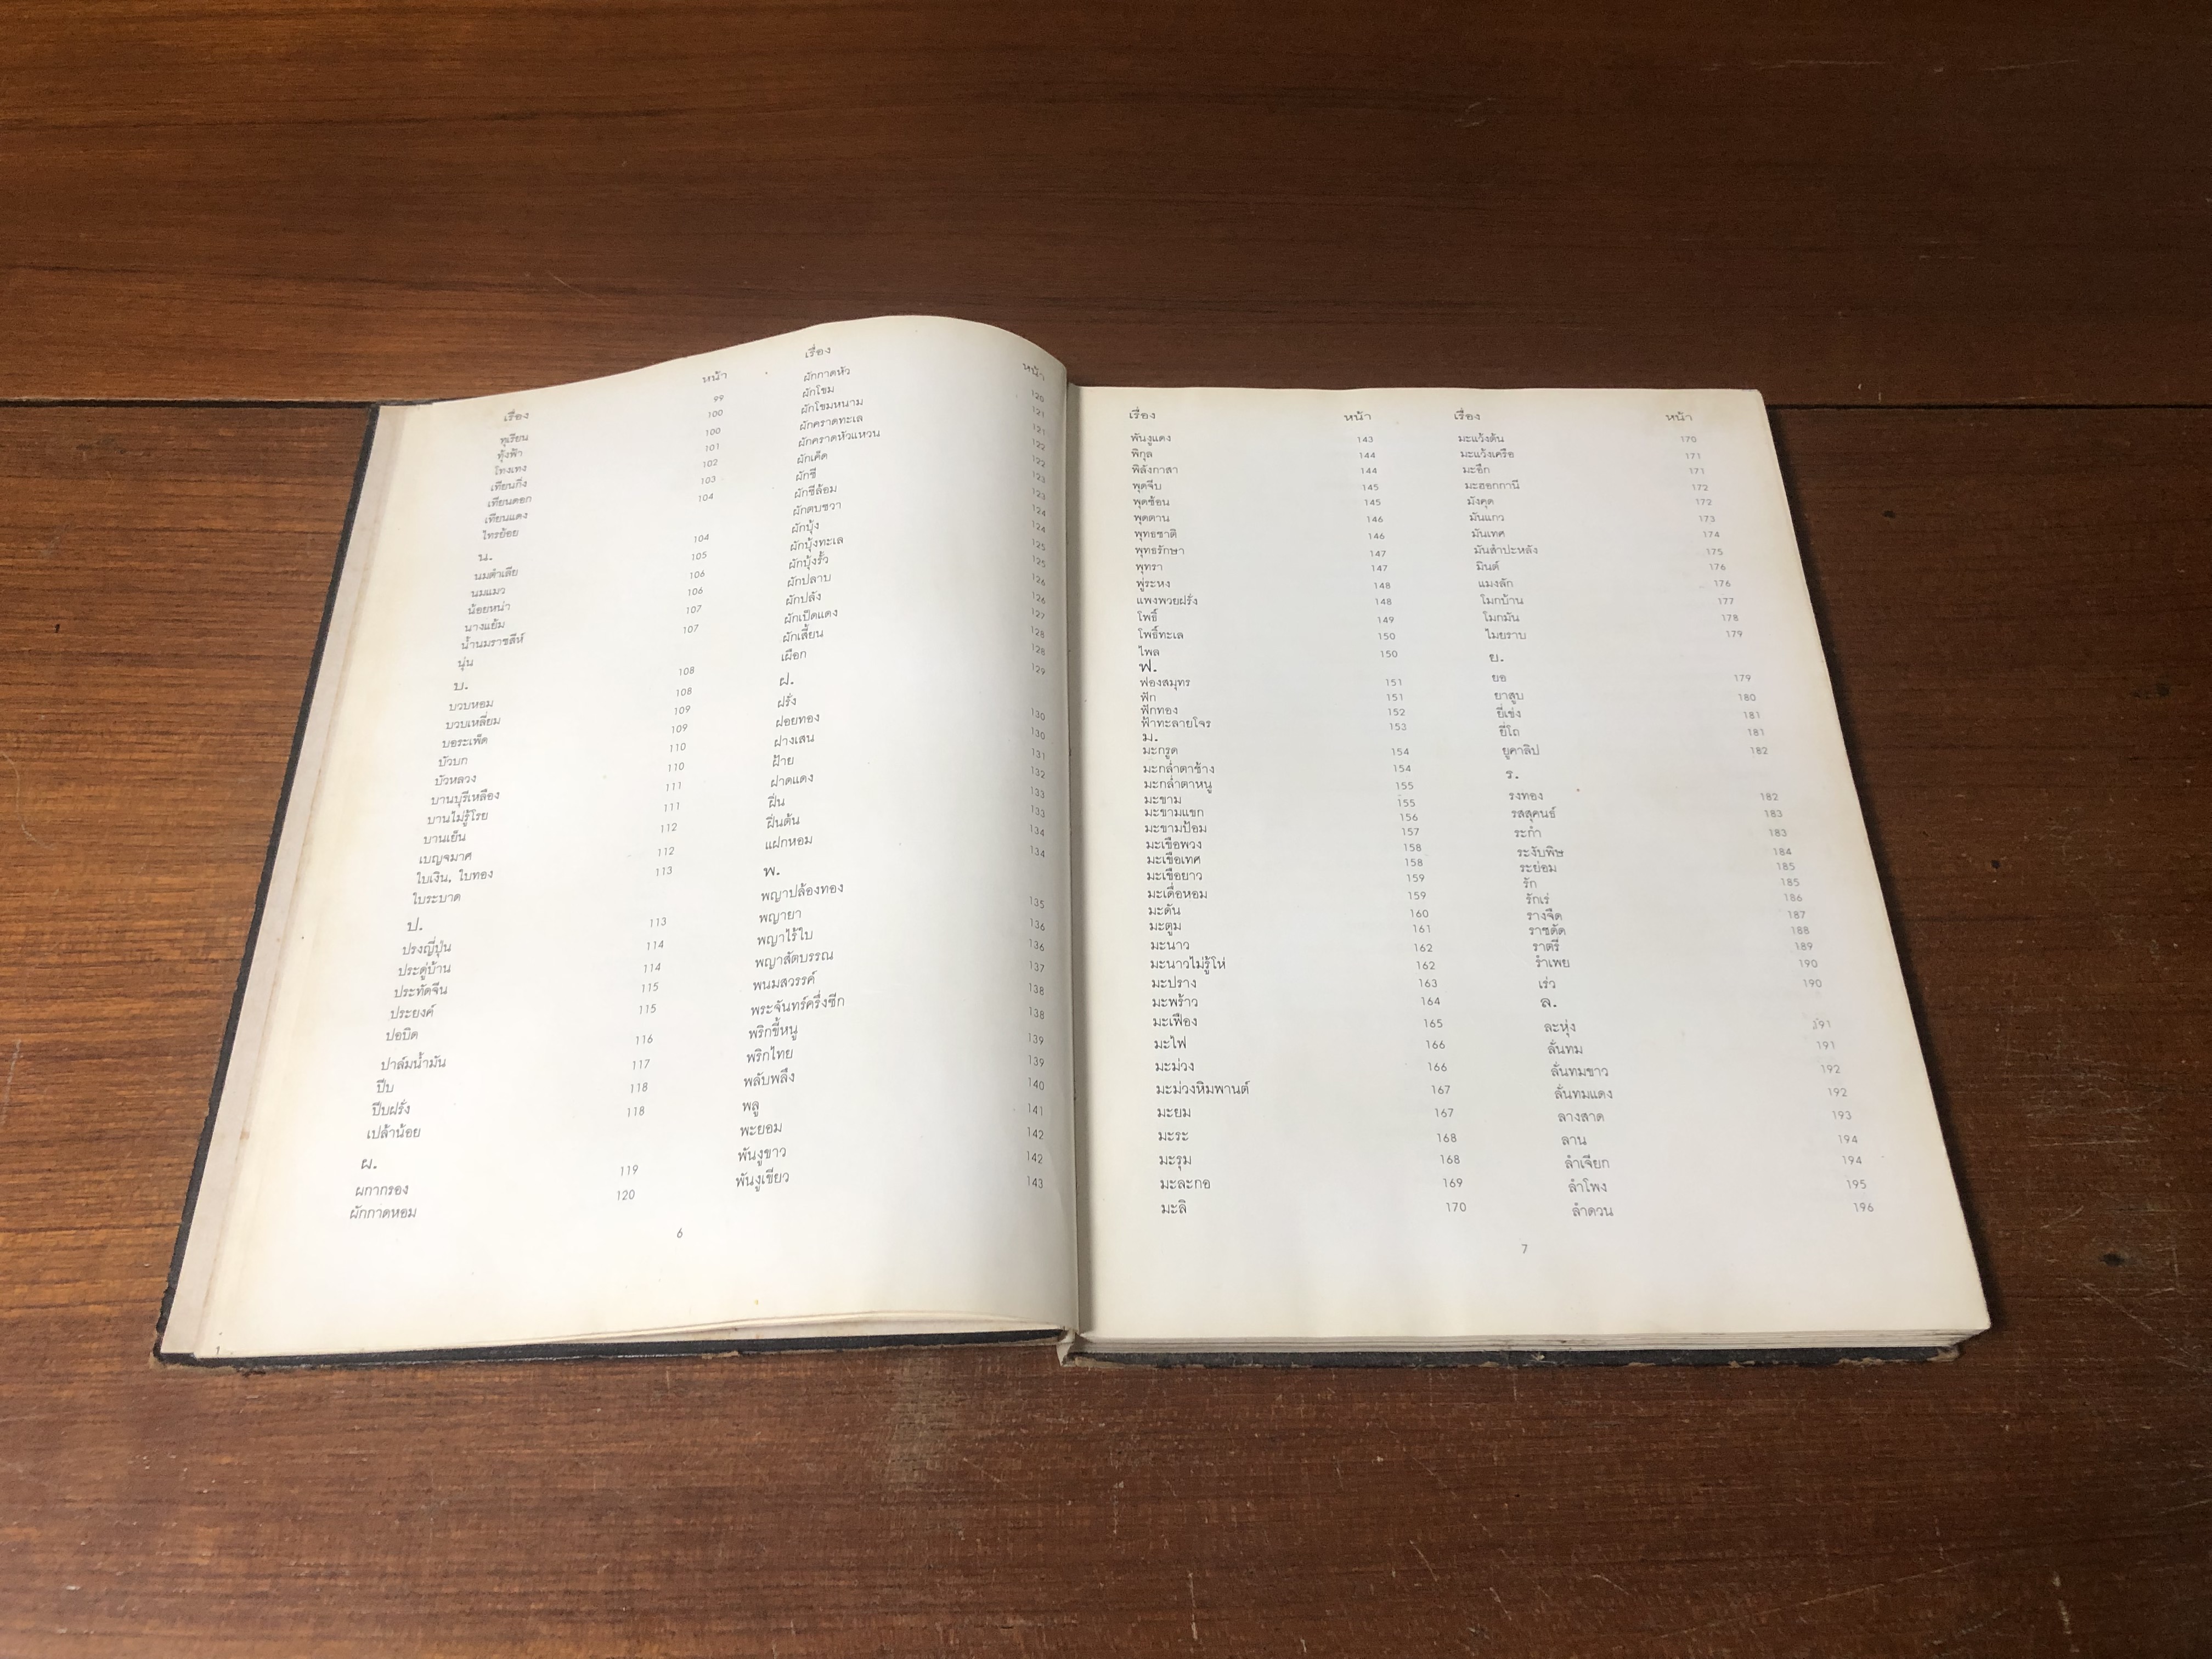 เรื่อง หน้า
ทุเรียน 99
ทุ้งฟ้า 100
โทงเทง 100
เทียนกิ่ง 101
เทียนดอก 102
เทียนแดง 103
ไทรย้อย 104
น.
นมตำเลีย 104
นมแมว 105
น้อยหน่า 106
นางแย้ม 106
น้ำนมราชสีห์ 107
นุ่น 107
บ.
บวบหอม 108
บวบเหลี่ยม 108
บอระเพ็ด 109
บัวบก 109
บัวหลวง 110
บานบุรีเหลือง 110
บานไม่รู้โรย 111
บานเย็น 111
เบญจมาศ 112
ใบเงิน, ใบทอง 112
ใบระบาด 113
ป.
ปรงญี่ปุ่น 113
ประดู่บ้าน 114
ประทัดจีน 114
ประยงค์ 115
ปอบิด 115
ปาล์มน้ำมัน 116
ปีบ 117
ปีบฝรั่ง 118
เปล้าน้อย 118
ผ.
ผกากรอง 119
ผักกาดหอม 120
เรื่อง หน้า
ผักกาดหัว 120
ผักโขม 121
ผักโขมหนาม 121
ผักคราดทะเล 122
ผักคราดหัวแหวน 122
ผักเค็ด 123
ผักชี 123
ผักชีล้อม 124
ผักตบชวา 124
ผักบุ้ง 125
ผักบุ้งทะเล 125
ผักบุ้งรั้ว 126
ผักปลาบ 126
ผักปลัง 127
ผักเป็ดแดง 128
ผักเสี้ยน 128
เผือก 129
ฝ.
ฝรั่ง 130
ฝอยทอง 130
ฝางเสน 131
ฝ้าย 132
ฝาดแดง 133
ฝิ่น 133
ฝิ่นต้น 134
แฝกหอม 134
พ.
พญาปล้องทอง 135
พญายา 136
พญาไร้ใบ 136
พญาสัตบรรณ 137
พนมสวรรค์ 138
พระจันทร์ครึ่งซีก 138
พริกขี้หนู 139
พริกไทย 139
พลับพลึง 140
พลู 141
พะยอม 142
พันงูขาว 142
พันงูเขียว 143
6
เรื่อง หน้า
พันงูแดง 143
พิกุล 144
พิลังกาสา 144
พุดจีบ 145
พุดซ้อน 145
พุดตาน 146
พุทธชาติ 146
พุทธรักษา 147
พุทรา 147
พู่ระหง 148
แพงพวยฝรั่ง 148
โพธิ์ 149
โพธิ์ทะเล 150
ไพล 150
ฟ.
ฟองสมุทร 151
ฟัก 151
ฟักทอง 152
ฟ้าทะลายโจร 153
ม.
มะกรูด 154
มะกล่ำตาช้าง 154
มะกล่ำตาหนู 155
มะขาม 155
มะขามแขก 156
มะขามป้อม 157
มะเขือพวง 158
มะเขือเทศ 158
มะเขือยาว 159
มะเดื่อหอม 159
มะดัน 160
มะตูม 161
มะนาว 162
มะนาวไม่รู้โห่ 162
มะปราง 163
มะพร้าว 164
มะเฟือง 165
มะไฟ 166
มะม่วง 166
มะม่วงหิมพานต์ 167
มะยม 167
มะระ 168
มะรุม 168
มะละกอ 169
มะลิ 170
เรื่อง หน้า
มะแว้งต้น 170
มะแว้งเครือ 171
มะอึก 171
มะฮอกกานี 172
มังคุด 172
มันแกว 173
มันเทศ 174
มันสำปะหลัง 175
มินต์ 176
แมงลัก 176
โมกบ้าน 177
โมกมัน 178
ไมยราบ 179
ย.
ยอ 179
ยาสูบ 180
ยี่เข่ง 181
ยี่โถ 181
ยูคาลิป 182
ร.
รงทอง 182
รสสุคนธ์ 183
ระกำ 183
ระงับพิษ 184
ระย่อม 185
รัก 185
รักเร่ 186
รางจืด 187
ราชดัด 188
ราตรี 189
รำเพย 190
เร่ว 190
ล.
ละหุ่ง 191
ลั่นทม 191
ลั่นทมขาว 192
ลั่นทมแดง 192
ลางสาด 193
ลาน 194
ลำเจียก 194
ลำโพง 195
ลำดวน 196
7